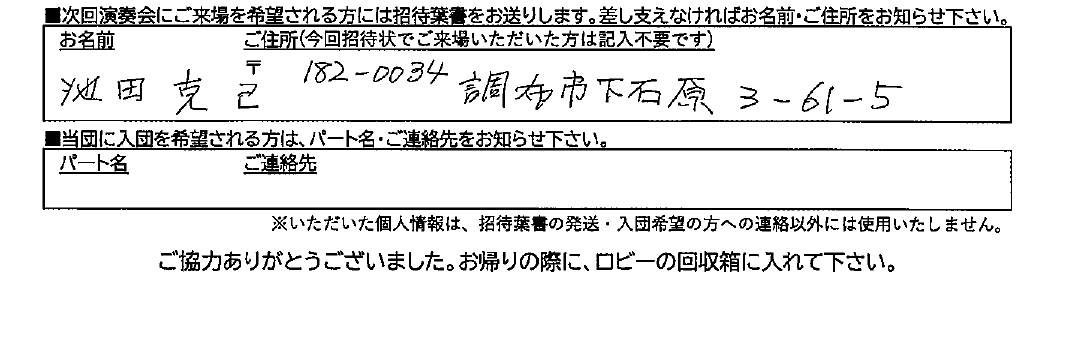 ■次回演奏会にご来場を希望される方には招待葉書をお送りします。差し支えなければお名前・ご住所をお知らせ下さい。
お名前 ご住所(今回招待状でご来場いただいた方は記入不要です)
池田 克己 〒182-0034 調布市下石原 3-61-5
■当団に入団を希望される方は、パート名・ご連絡先をお知らせ下さい。
パート名 ご連絡先
※いただいた個人情報は、招待葉書の発送・入団希望の方への連絡以外には使用いたしません。
ご協力ありがとうございました。お帰りの際に、ロビーの回収箱に入れて下さい。